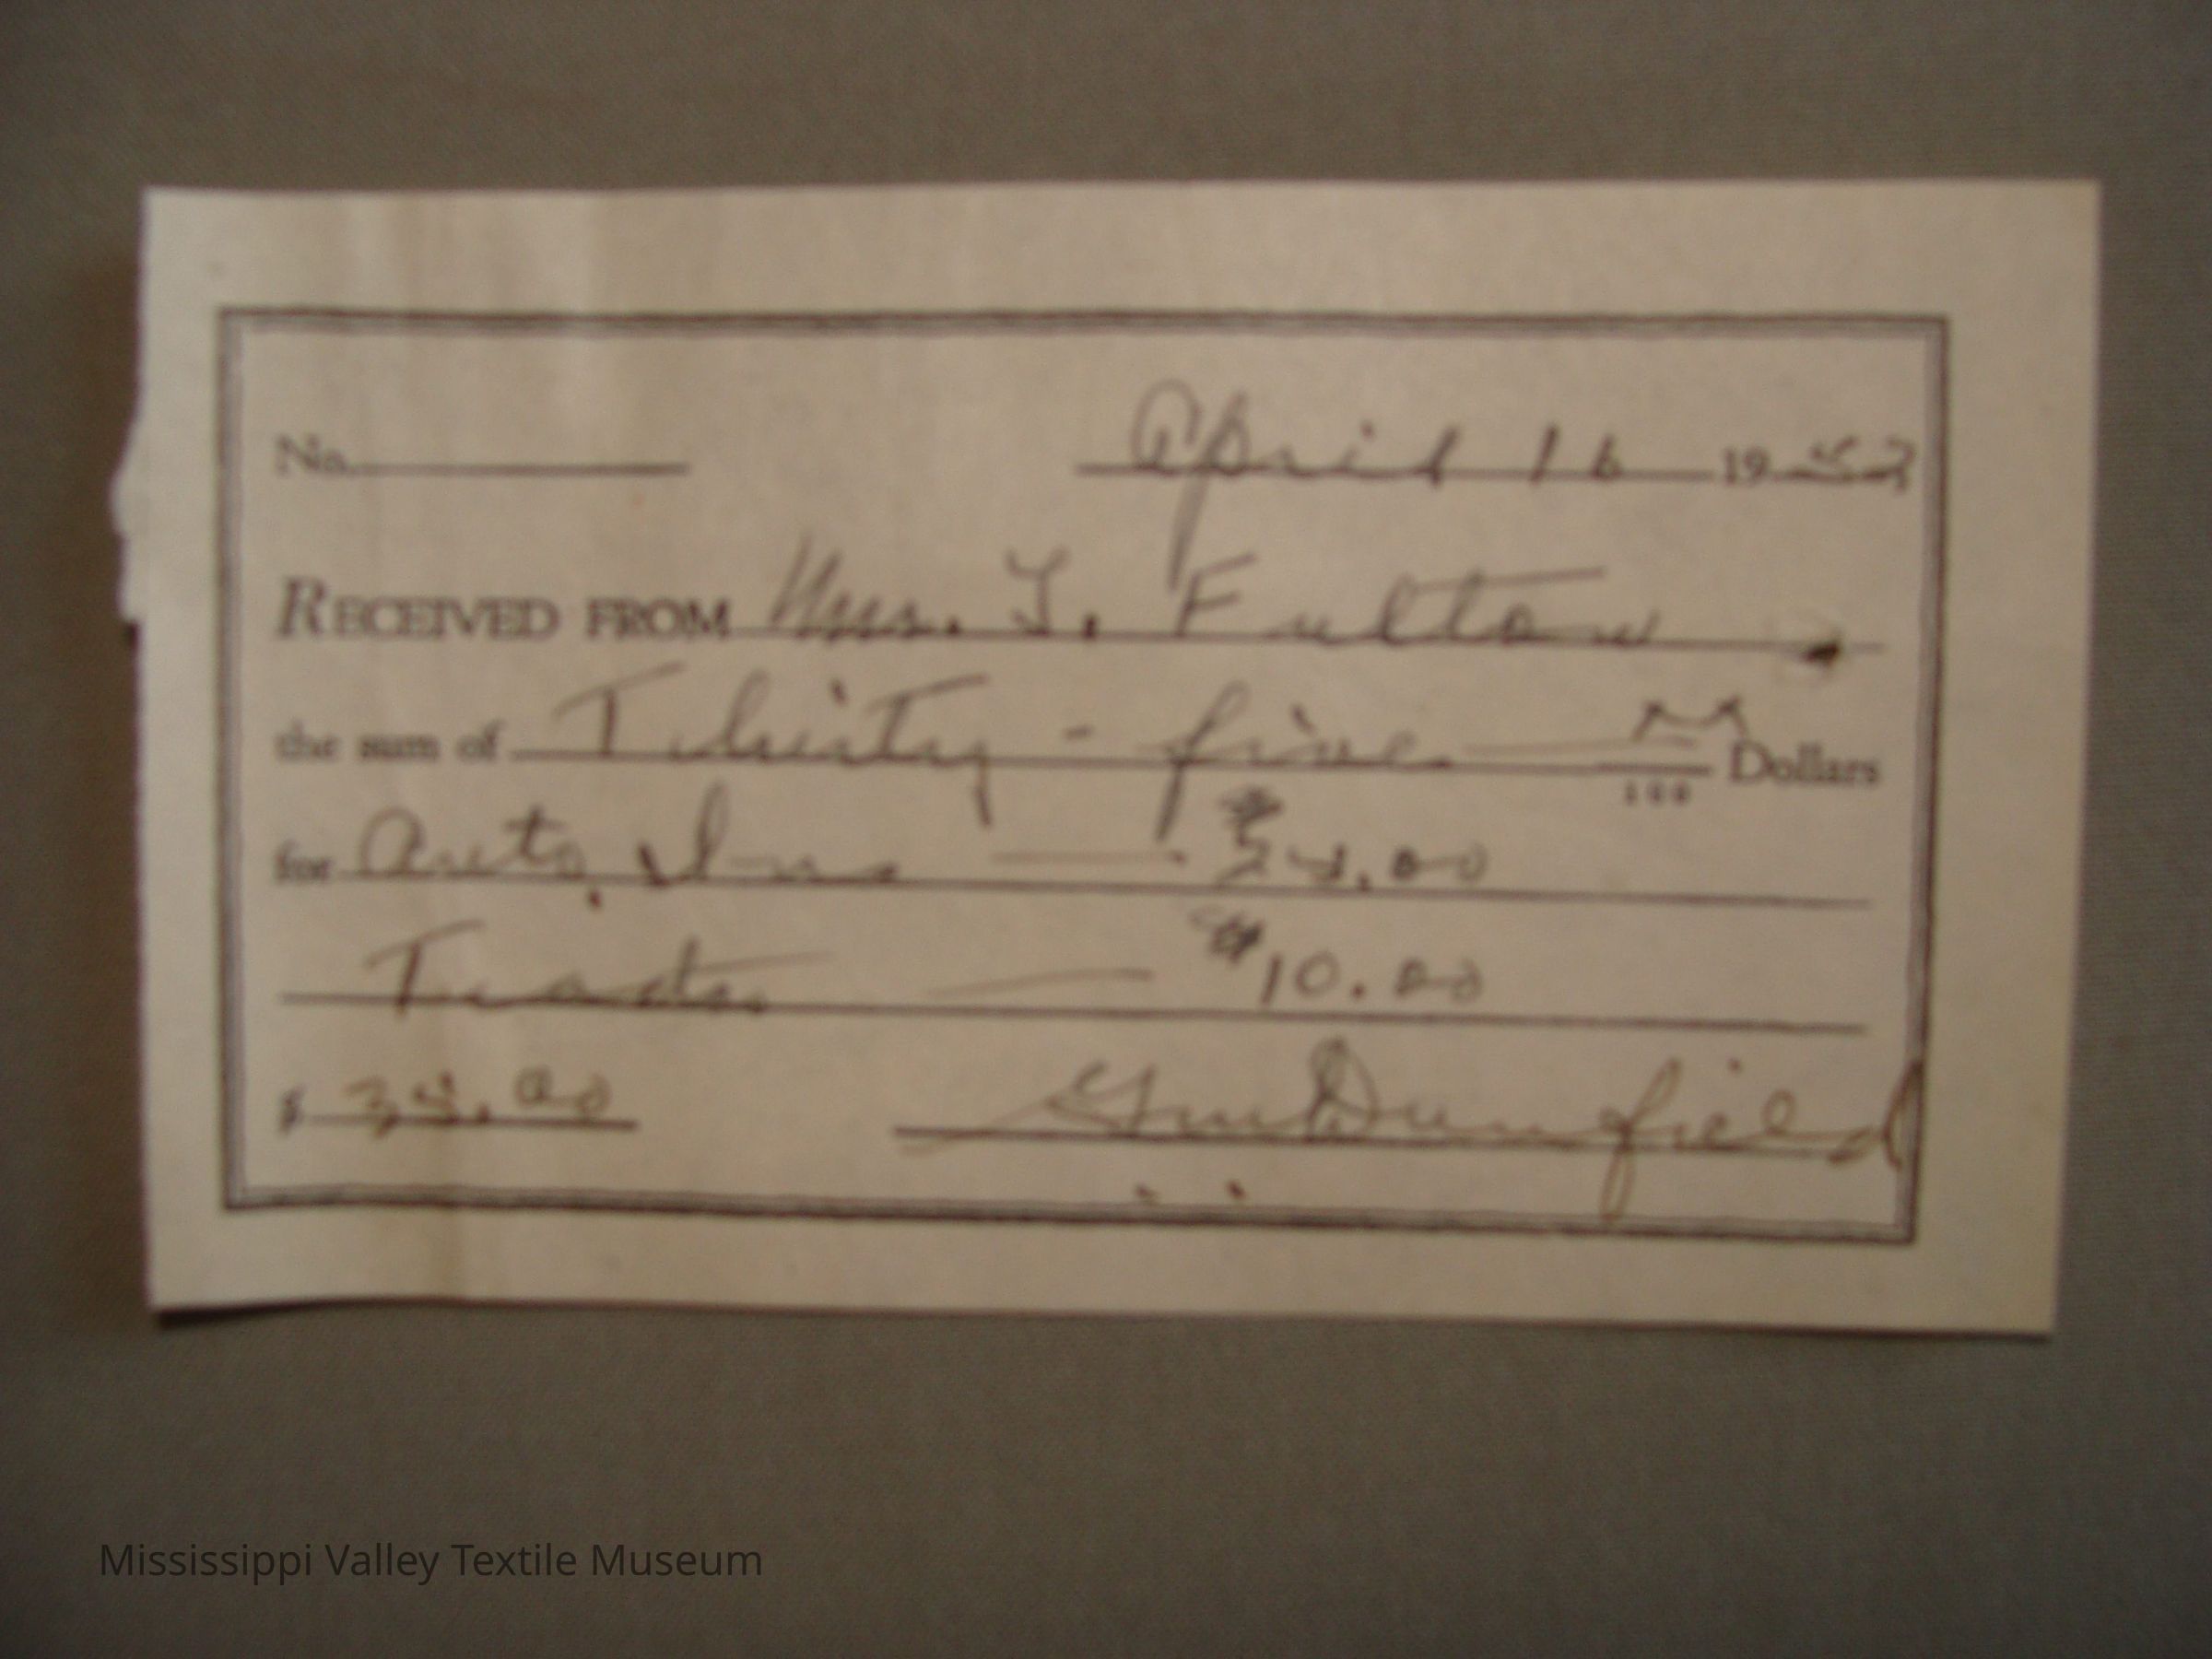 No. April 16 1952
RECEIVED FROM Mrs. T. Fulton
the sum of Thirty - five 100 Dollars
for Auto Ins $
$10.00
$ 35.00
Mississippi Valley Textile Museum